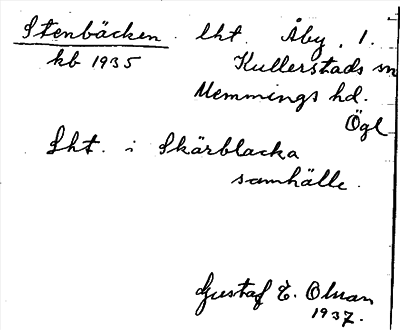 Stenbäcken lht. Åby, 1.
kb 1935 Kullerstads sn
Memmings hd.
Ögl
Lht. i Skärblacka
samhälle.
Gustaf E. Olsson
1937.